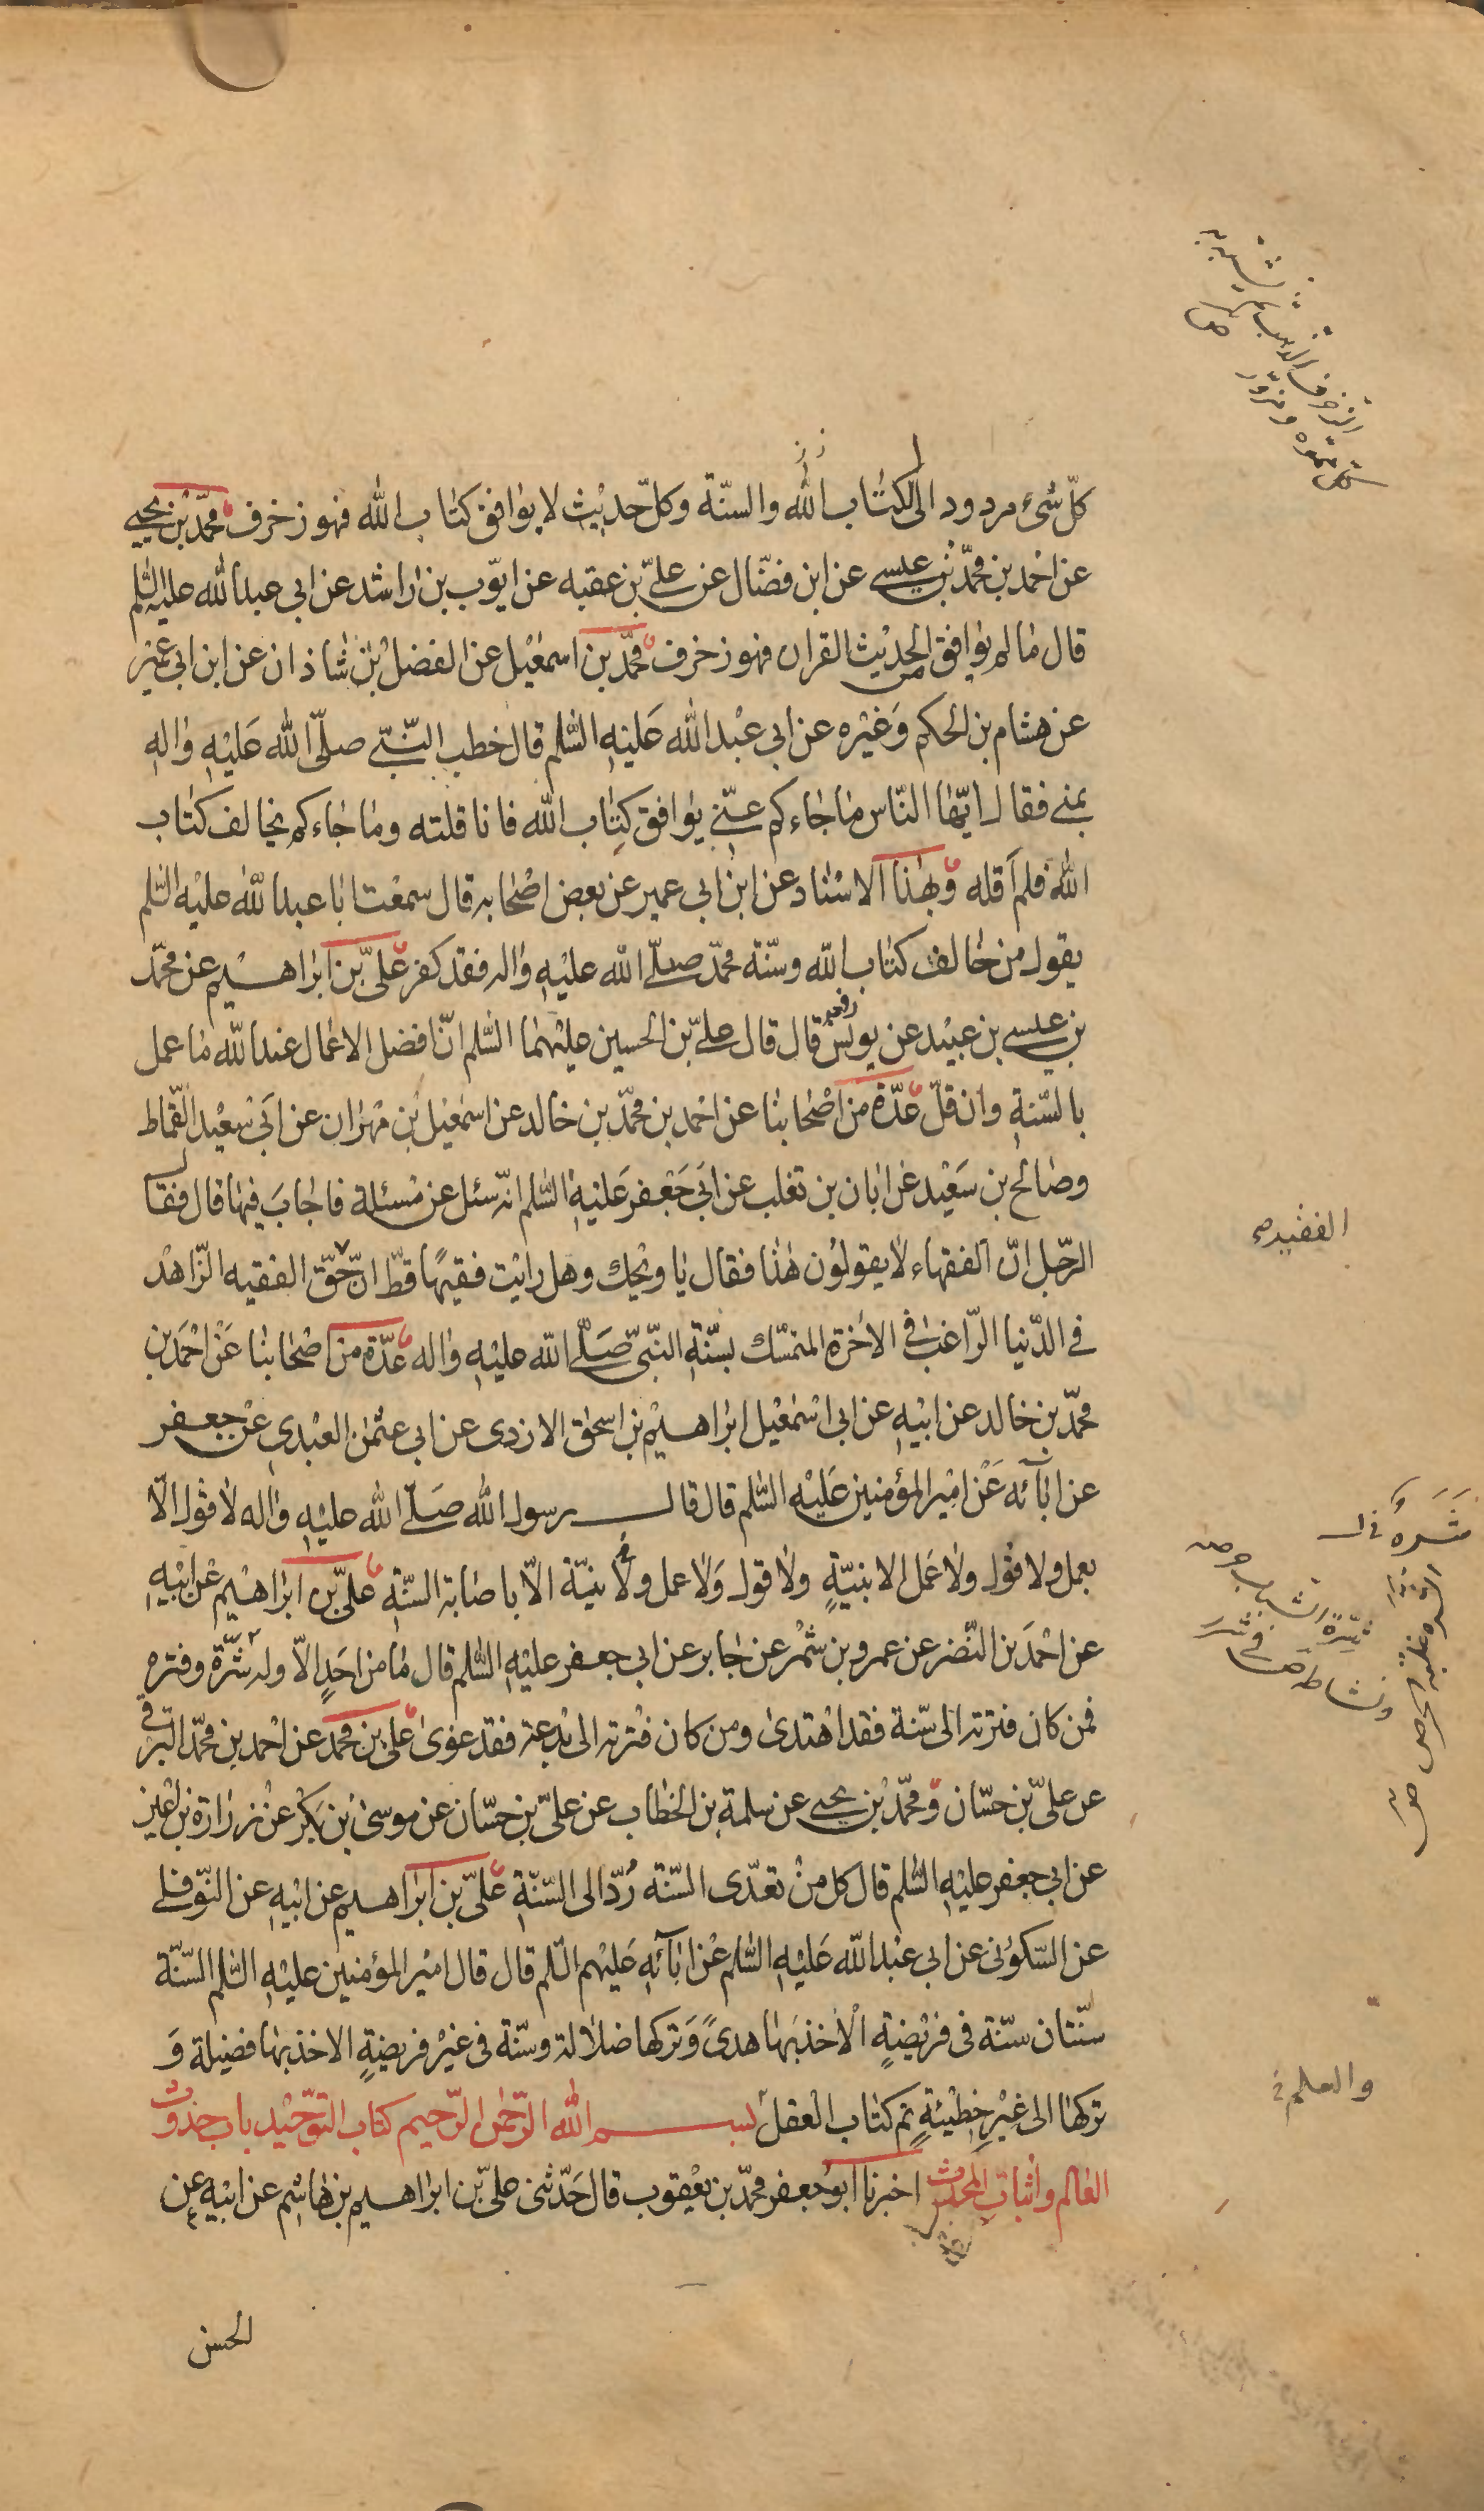 كلّ شىء مردود الى الكتاب الله والسنّة وكلّ حديث لا يوافق كتاب الله فهو زخرف محمّد بن يحيى
عن احمد بن محمّد بن عيسى عن ابن فضّال عن علىّ بن عقبه عن ايّوب بن راشد عن ابى عبد الله عليه السّلم
قال ما لم يوافق من الحديث القران فهو زخرف محمّد بن اسمعيل عن الفضل بن شاذان عن ابن ابى عمير
عن هشام بن الحكم وغيره عن ابى عبد الله عليه السّلم قال خطب النّبىّ صلّى الله عليه واله
بمنى فقال ايّها النّاس ما جاءكم عنّى يوافق كتاب الله فانا قلته وما جاءكم يخالف كتاب
الله فلم اقله وبهذا الاسناد عن ابن ابى عمير عن بعض اصحابه قال سمعت ابا عبد الله عليه السّلم
يقول من خالف كتاب الله وسنّة محمّد صلّى الله عليه واله فقد كفر علىّ بن ابراهيم عن محمّد
بن عيسى بن عبيد عن يونس رفعه قال قال علىّ بن الحسين عليهما السّلم انّ افضل الاعمال عند الله ما عمل
بالسّنة وان قلّ عدّة من اصحابنا عن احمد بن محمّد بن خالد عن اسمعيل بن مهران عن ابى سعيد القمّاط
وصالح بن سعيد عن ابان بن تغلب عن ابى جعفر عليه السّلم انّه سئل عن مسئلة فاجاب فيها قال فقال
الرّجل انّ الفقهاء لا يقولون هذا فقال يا ويحك وهل رايت فقيها قطّ انّ حقّ الفقيه الزّاهد
الفقيه
فى الدّنيا الرّاغب فى الاخرة المتمسّك بسنّة النّبىّ صلّى الله عليه واله عدّة من اصحابنا عن احمد بن
محمّد بن خالد عن ابيه عن ابى اسمعيل ابراهيم بن اسحق الازدى عن ابى عثمن العبدى عن جعفر
عن ابآئه عن امير المؤمنين عليه السّلم قال قال رسول الله صلّى الله عليه واله لا قول الّا
بعمل ولا قول ولا عمل الا بنيّةٍ ولا قول ولا عمل ولا نيّة الّا باصابة السنّة علىّ بن ابراهيم عن ابيه
عن احمد بن النّضر عن عمرو بن شمر عن جابر عن ابى جعفر عليه السّلم قال ما من احدٍ الّا وله شرّة وفتره
فمن كان فترته الى سنّة فقد اهتدى ومن كان فترته الى بدعة فقد غوى على بن محمد عن احمد بن محمّد البرقى
عن علىّ بن حسّان ومحمّد بن يحيى عن سلمة بن الخطاب عن علىّ بن حسّان عن موسى بن بكر عن زرارة بن اعين
عن ابى جعفر عليه السّلم قال كل من تعدّى السّنة رُدّ الى السّنّة علىّ بن ابراهيم عن ابيه عن النّوفلى
عن السّكونى عن ابى عبد الله عليه السّلم عن ابآئه عليهم السّلم قال قال امير المؤمنين عليه السّلم السّنّة
سنّتان سنّة فى فريضةٍ الاخذ بها هدىً وتركها ضلالة وسنّة فى غير فريضةٍ الاخذ بها فضيلة وَ
تركها الى غير خطيئةٍ تم كتاب العقل بسم الله الرّحمن الرّحيم كتاب التّوحيد باب حدوث
والعلم
العالم واثبات المحدث اخبرنا ابو جعفر محمّد بن يعقوب قال حدّثنى علىّ بن ابراهيم بن هاشم عن ابيه عن
الحسن